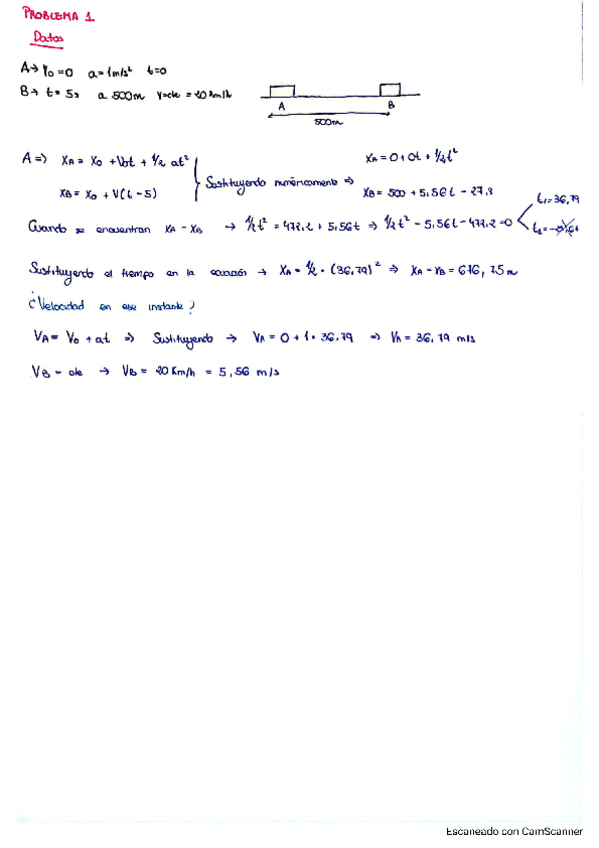 PROBLEMA 1
Datos
A → V₀ = 0 a = 1m/s² t=0
B → t = 5s a 500m V=cte = 20 Km/h
A B
500m
A => XA = X0 + V0t + 1/2 at²
XB = X0 + V(t - 5)
Sustituyendo numéricamente =>
XA = 0 + 0t + 1/2 t²
XB = 500 + 5.56t - 27.8
Cuando se encuentran XA = XB → 1/2 t² = 472.2 + 5.56t => 1/2 t² - 5.56t - 472.2 = 0
t1 = 36,79
t2 =
Sustituyendo el tiempo en la ecuación → XA = 1/2 · (36.79)² => XA = XB = 676,75m
¿Velocidad en ese instante?
VA = V0 + at => Sustituyendo → VA = 0 + 1 · 36.79 => VA = 36,79 m/s
VB = cte → VB = 20 Km/h = 5,56 m/s
Escaneado con CamScanner